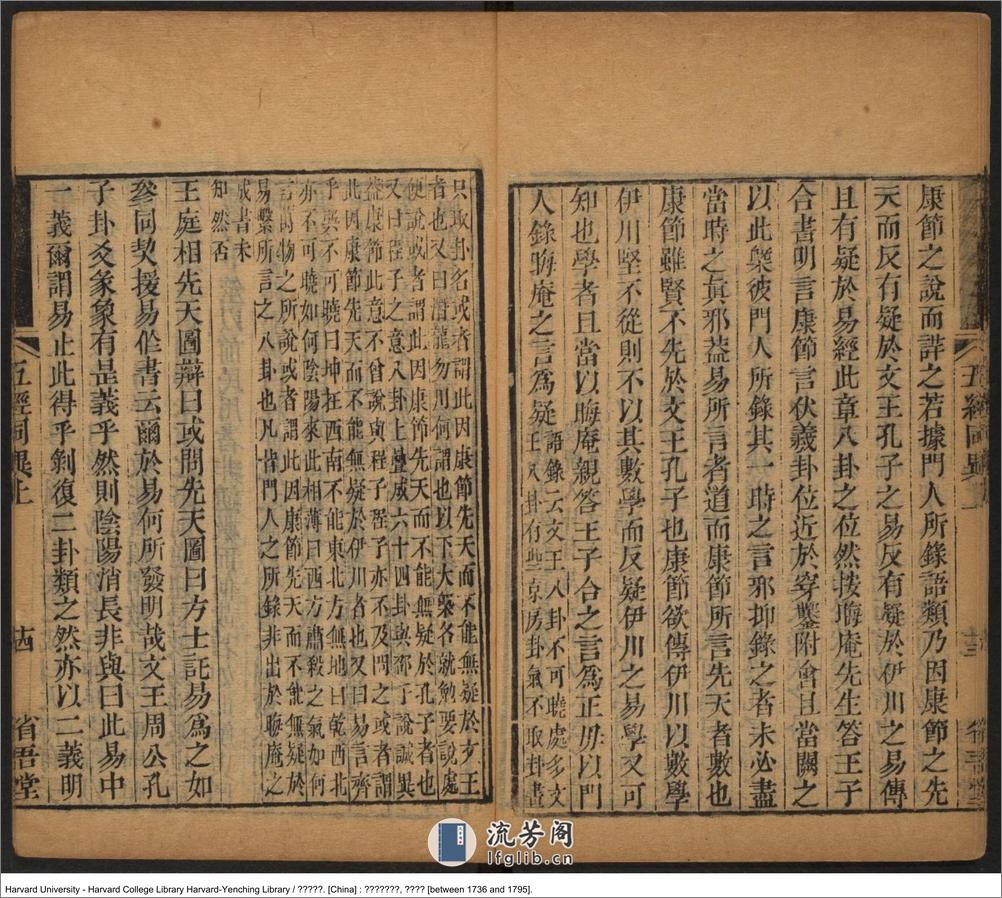 康節之說而詳之若據門人所錄語類乃因康節之先
天而反有疑於文王孔子之易反有疑於伊川之易傳
且有疑於易經此章八卦之位然按晦庵先生答王子
合書明言康節言伏羲卦位近於穿鑿附會且當闕之
以此槩彼門人所錄其一時之言邪抑錄之者未必盡
當時之眞邪葢易所言者道而康節所言先天者數也
康節雖賢不先於文王孔子也康節欲傳伊川以數學
伊川堅不從則不以其數學而反疑伊川之易學又可
知也學者且當以晦庵親答王子合之言爲正毋以門
人錄晦庵之言爲疑
語錄云文王八卦不可曉處多文
王八卦有些京房卦氣不取卦畫
五經同異上
只取卦名或者謂此因康節先天而不能無疑於文王
者也又曰潛龍勿用何謂也以下大槩名就勉要說處
便說或者謂此因康節先天而不能無疑於孔子者也
又曰程子之意八卦上疊成六十四卦與邵子說誠異
葢康節此意不曾說與程子程子亦不及問之或者謂
此因康節先天而不能無疑於伊川者也又曰易言齊
乎巽不可曉曰坤在西南不能東北方無地曰乾西北
亦不可曉如何陰陽來此相薄曰西方肅殺之氣如何
言萬物之所說或者謂此因康節先天而不能無疑於
易繫所言之八卦也凡皆門人之所錄非出於晦庵之
成書未
知然否
王庭相先天圖辯曰或問先天圖曰方士託易爲之如
參同契援易作書云爾於易何所發明哉文王周公孔
子卦爻彖象有是義乎然則陰陽消長非與曰此易中
一義爾謂易止此得乎剝復二卦類之然亦以二義明
五經同異上
十四
省吾堂
流芳阁
lfglib.cn
Harvard University - Harvard College Library Harvard-Yenching Library / ?????. [China] : ???????, ???? [between 1736 and 1795].